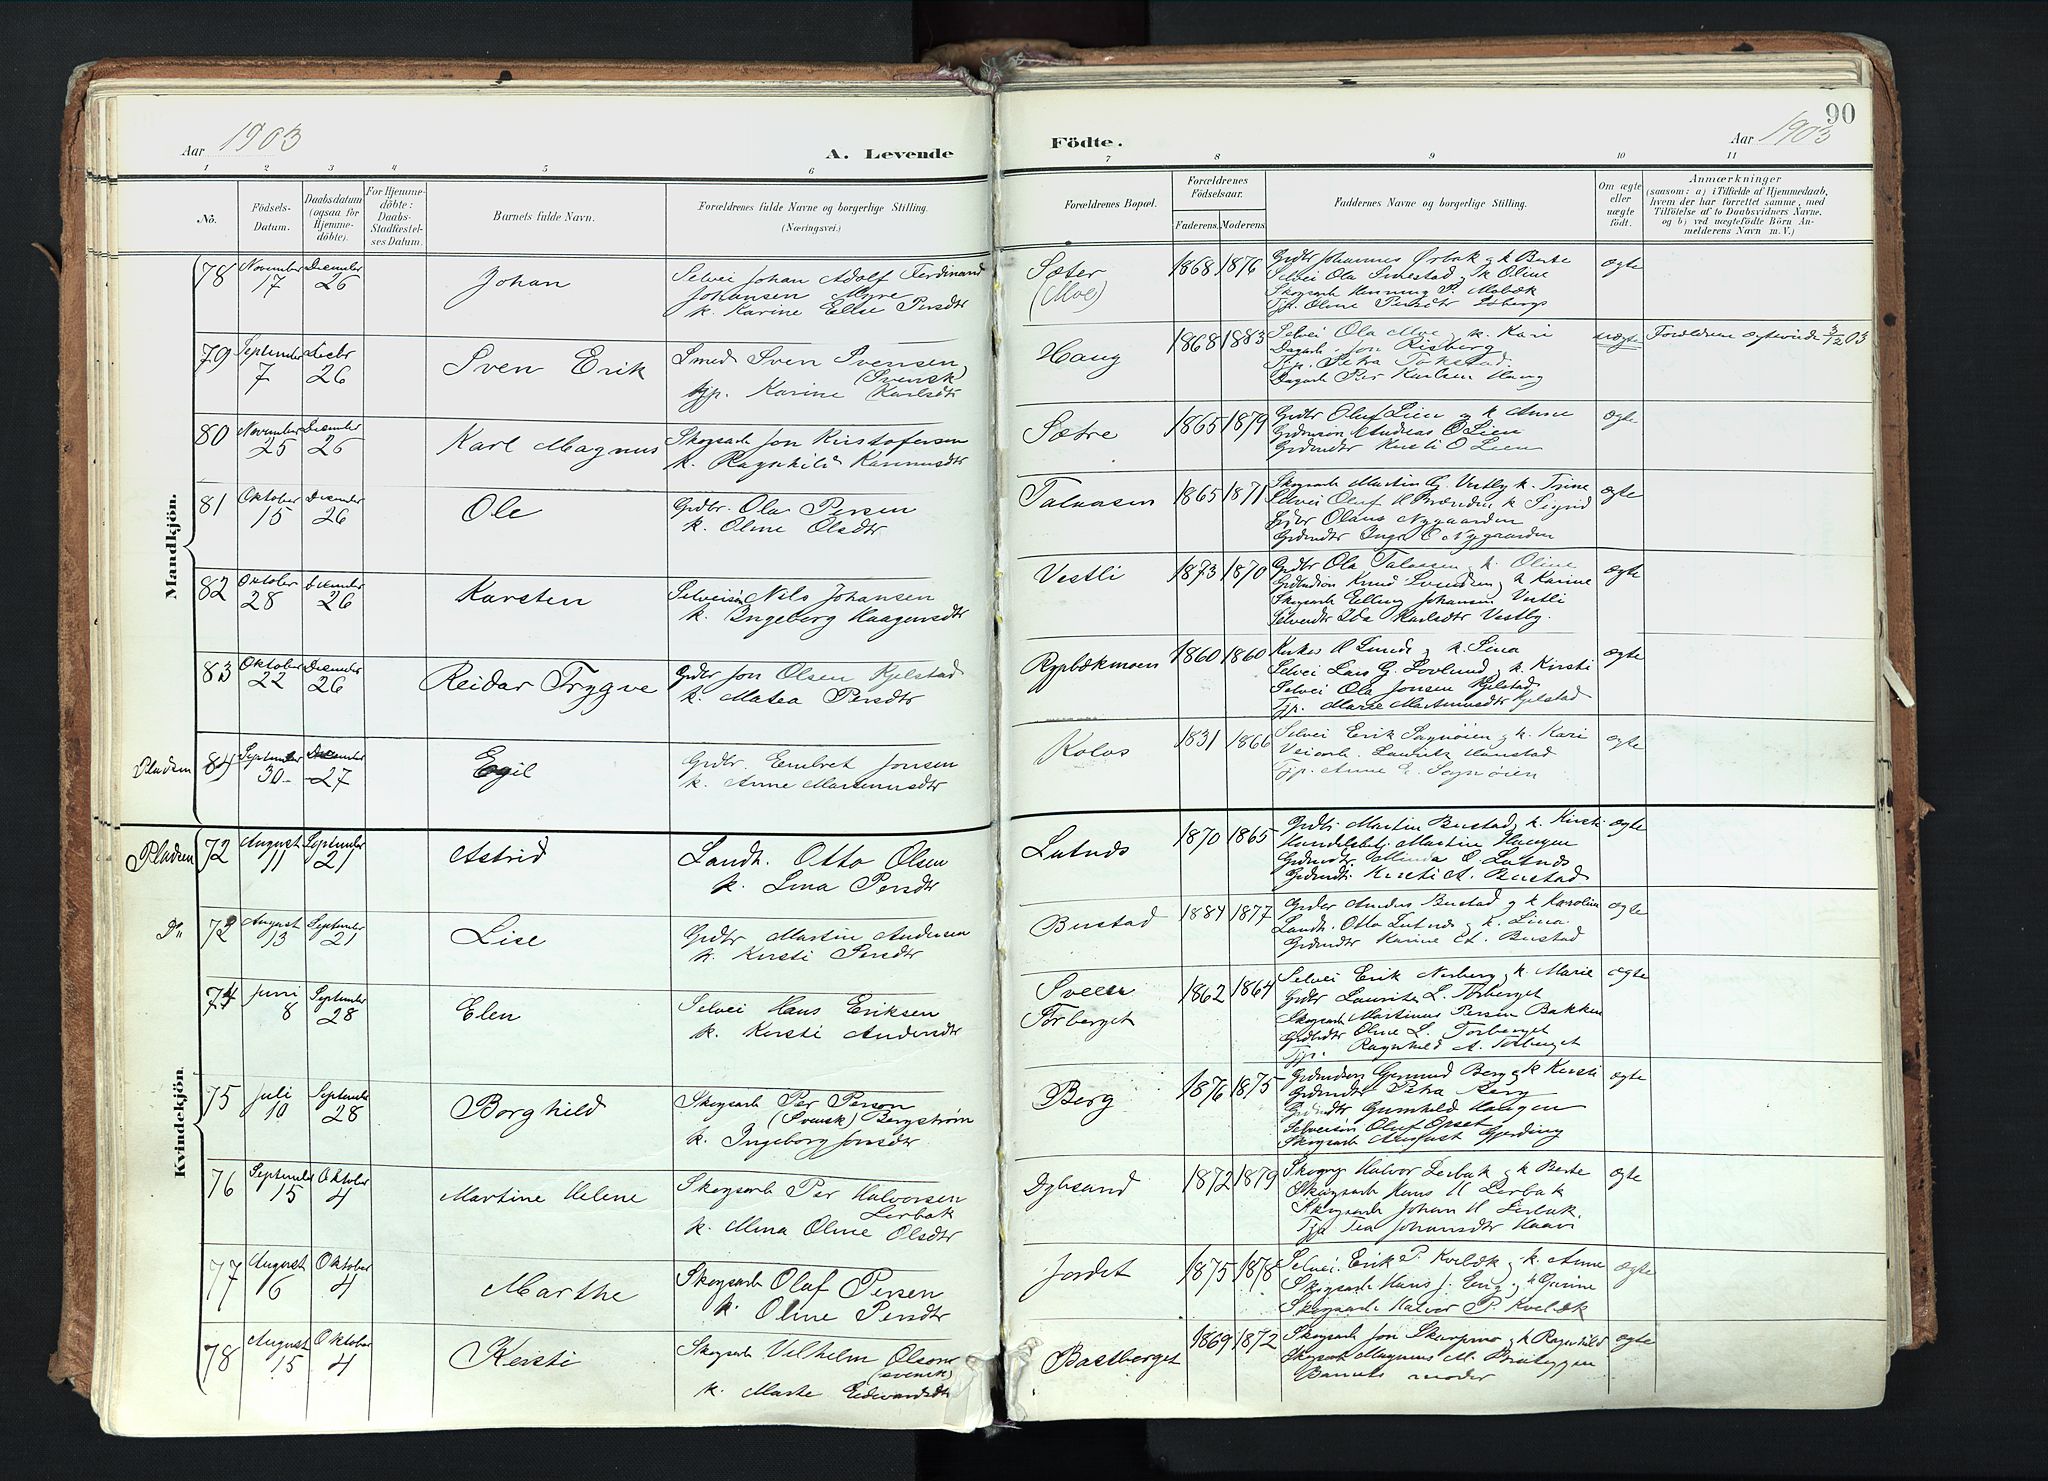 Aar 1903
A. Levende
Födte.
Aar 1903
90
1 2 3 4 5 6 7 8 9 10 11
No.
Födsels-
Datum.
Daabsdatum
(ogsaa for
Hjemme-
döbte).
For Hjemme-
döbte:
Daabs-
Stadfæstel-
ses Datum.
Barnets fulde Navn.
Forældrenes fulde Navne og borgerlige Stilling.
(Næringsvei.)
Forældrenes Bopæl.
Forældrenes
Födselsaar.
Faderens. Moderens.
Faddernes Navne og borgerlige Stilling.
Om ægte
eller
uægte
födt.
Anmærkninger
(saasom: a) i Tilfælde af Hjemmedaab,
hvem der har forrettet samme, med
Tilföielse af to Daabsvidners Navne,
og b) ved uægtefödte Börn An-
melderens Navn m. V.)
Mandkjön.
78 November 17 December 26 Johan
Selvei Johan Adolf Ferdinand
Johansen Myre
k. Karine Else Persdtr
Sæter
(Moe)
1868 1876
Grdbr Johannes Ørbak og k Berte
Selvei Ola k Oline
Skogsarb Henning P. Mobæk
Tjp. Oline Persdtr
ægte
79 September 7 Decbr 26 Sven Erik
Smed Sven Svensen
(Svensk)
tjp. Karine Karlsdtr
Haug
1868 1883
Selvei Ola Moe og k. Kari
Dagarb. Jon Risberg
Tjp. Petra
Dagarb Per Karlsen Haug
uægte
Forældrene ægteviede 3/12 03
80 November 25 December 26 Karl Magnus
Skogsarb Jon Kristofersen
k. Ragnhild Rasmusdtr
Sætre
1865 1879
Grdbr Oluf Lien og k Anne
Grdmsøn Andreas O Lien
Grdmdtr Kirsti O Lien
ægte
81 Oktober 15 December 26 Ole
Grdbr. Ola Persen
k. Oline Olsdtr
Talaasen
1865 1871
Skogsarb Martin G. Vestby k. Trine
Selvei Oluf k Signe
Olaus Nygaarden
Grdmdtr Inga O. Nygaarden
ægte
82 Oktober 28 December 26 Karsten
Selveisøn Nils Johansen
k. Ingeborg Haagensdtr
Vestli
1873 1870
Grdbr Ola Talaasen k. Oline
Knud Svendsen og k Karine
Skogsarb Elling Johansen Vestli
Selveidtr Ida Karlsdtr Vestby.
ægte
83 Oktober 22 December 26 Reidar Trygve
Grdbr Jon Olsen Kjelstad
k. Matea Persdtr
Rypbækmoen
1860 1860
Lunde og k. Lina
Selvei Lars G. Lovlund og k. Kirsti
Selvei Ola Jonsen Kjelstad
Tjp. Marie Martinusdtr Kjelstad
ægte
Pladsen
84 September 30 December 27 Egil
Grdbr. Embret Jonsen
k. Anne Martinusdtr
Kolos
1831 1866
Selvei Erik Sognöien og k. Kari
Veiarb. Lauritz Hamstad
Tjp. Anne E. Sognöien
ægte
Kvindekjön.
Pladsen
72 August 11 September 21 Astrid
Landh. Otto Olsen
k. Lina Persdtr
Lutnds
1870 1865
Grdbr Martin Bustad og k. Kirsti
Handelsbetj. Martin Haugen
Grdmdtr. Minda O. Lutnds
Grdmdtr. Kirsti A. Bustad
ægte
Do
73 August 13 September 21 Lise
Grdbr Martin Andersen
k. Kirsti Persdtr
Bustad
1884 1877
Grdbr Anders Bustad og k Karoline
Landh. Otto Lutnds og k. Lina
Grdmdtr Karine A. Bustad
ægte
74 Juni 8 September 28 Elen
Selvei Hans Eriksen
k. Kirsti Andersdtr
Sveen
Torberget
1862 1864
Selvei Erik Norberg og k. Marie
Grdbr Laurits L. Torberget
Skogsarb Martinus Persen Bakken
Grdmdtr Oline L. Torberget
Tjp. Ragnhild A. Torberget
ægte
75 Juli 10 September 28 Borghild
Skogsarb Per Person
(Svensk) Bergström
k. Ingeborg Jonsdtr
Berg
1876 1875
Grdmdsøn Gunmund Berg og k Kirsti
Grdmdtr Petra Berg
Grdmdtr Gunhild Haugen
Selveisøn Oluf Opset
Skogsarb August Gjerding
ægte
76 September 15 Oktober 4 Martine Helene
Skogsarb Per Halvorsen
Lerbak
k. Mina Oline Olsdtr
Dybsand
1872 1879
Halvor Lerbak og k Berte
Skogsarb Hans H Lerbak
Skogsarb Johan H Lerbak.
Tjp Tea Johansdtr Haavi
ægte
77 August 6 Oktober 4 Marthe
Skogsarb Olaf Persen
k. Oline Persdtr
Jordet
1875 1878
Selvei Erik P. Kvelæk og k. Anne
Skogsarb Hans J. Eng og k Gurine
Skogsarb Halvor P. Kvelæk
ægte
78 August 15 Oktober 4 Kersti
Skogsarb Vilhelm Olsen
(svensk)
k. Marte Edvardsdtr
Bastberget
1869 1872
Skogsarb Jon Skarpmo og k Ragnhild
Skogsarb Magnus M. Brateggen
Barnets moder
ægte